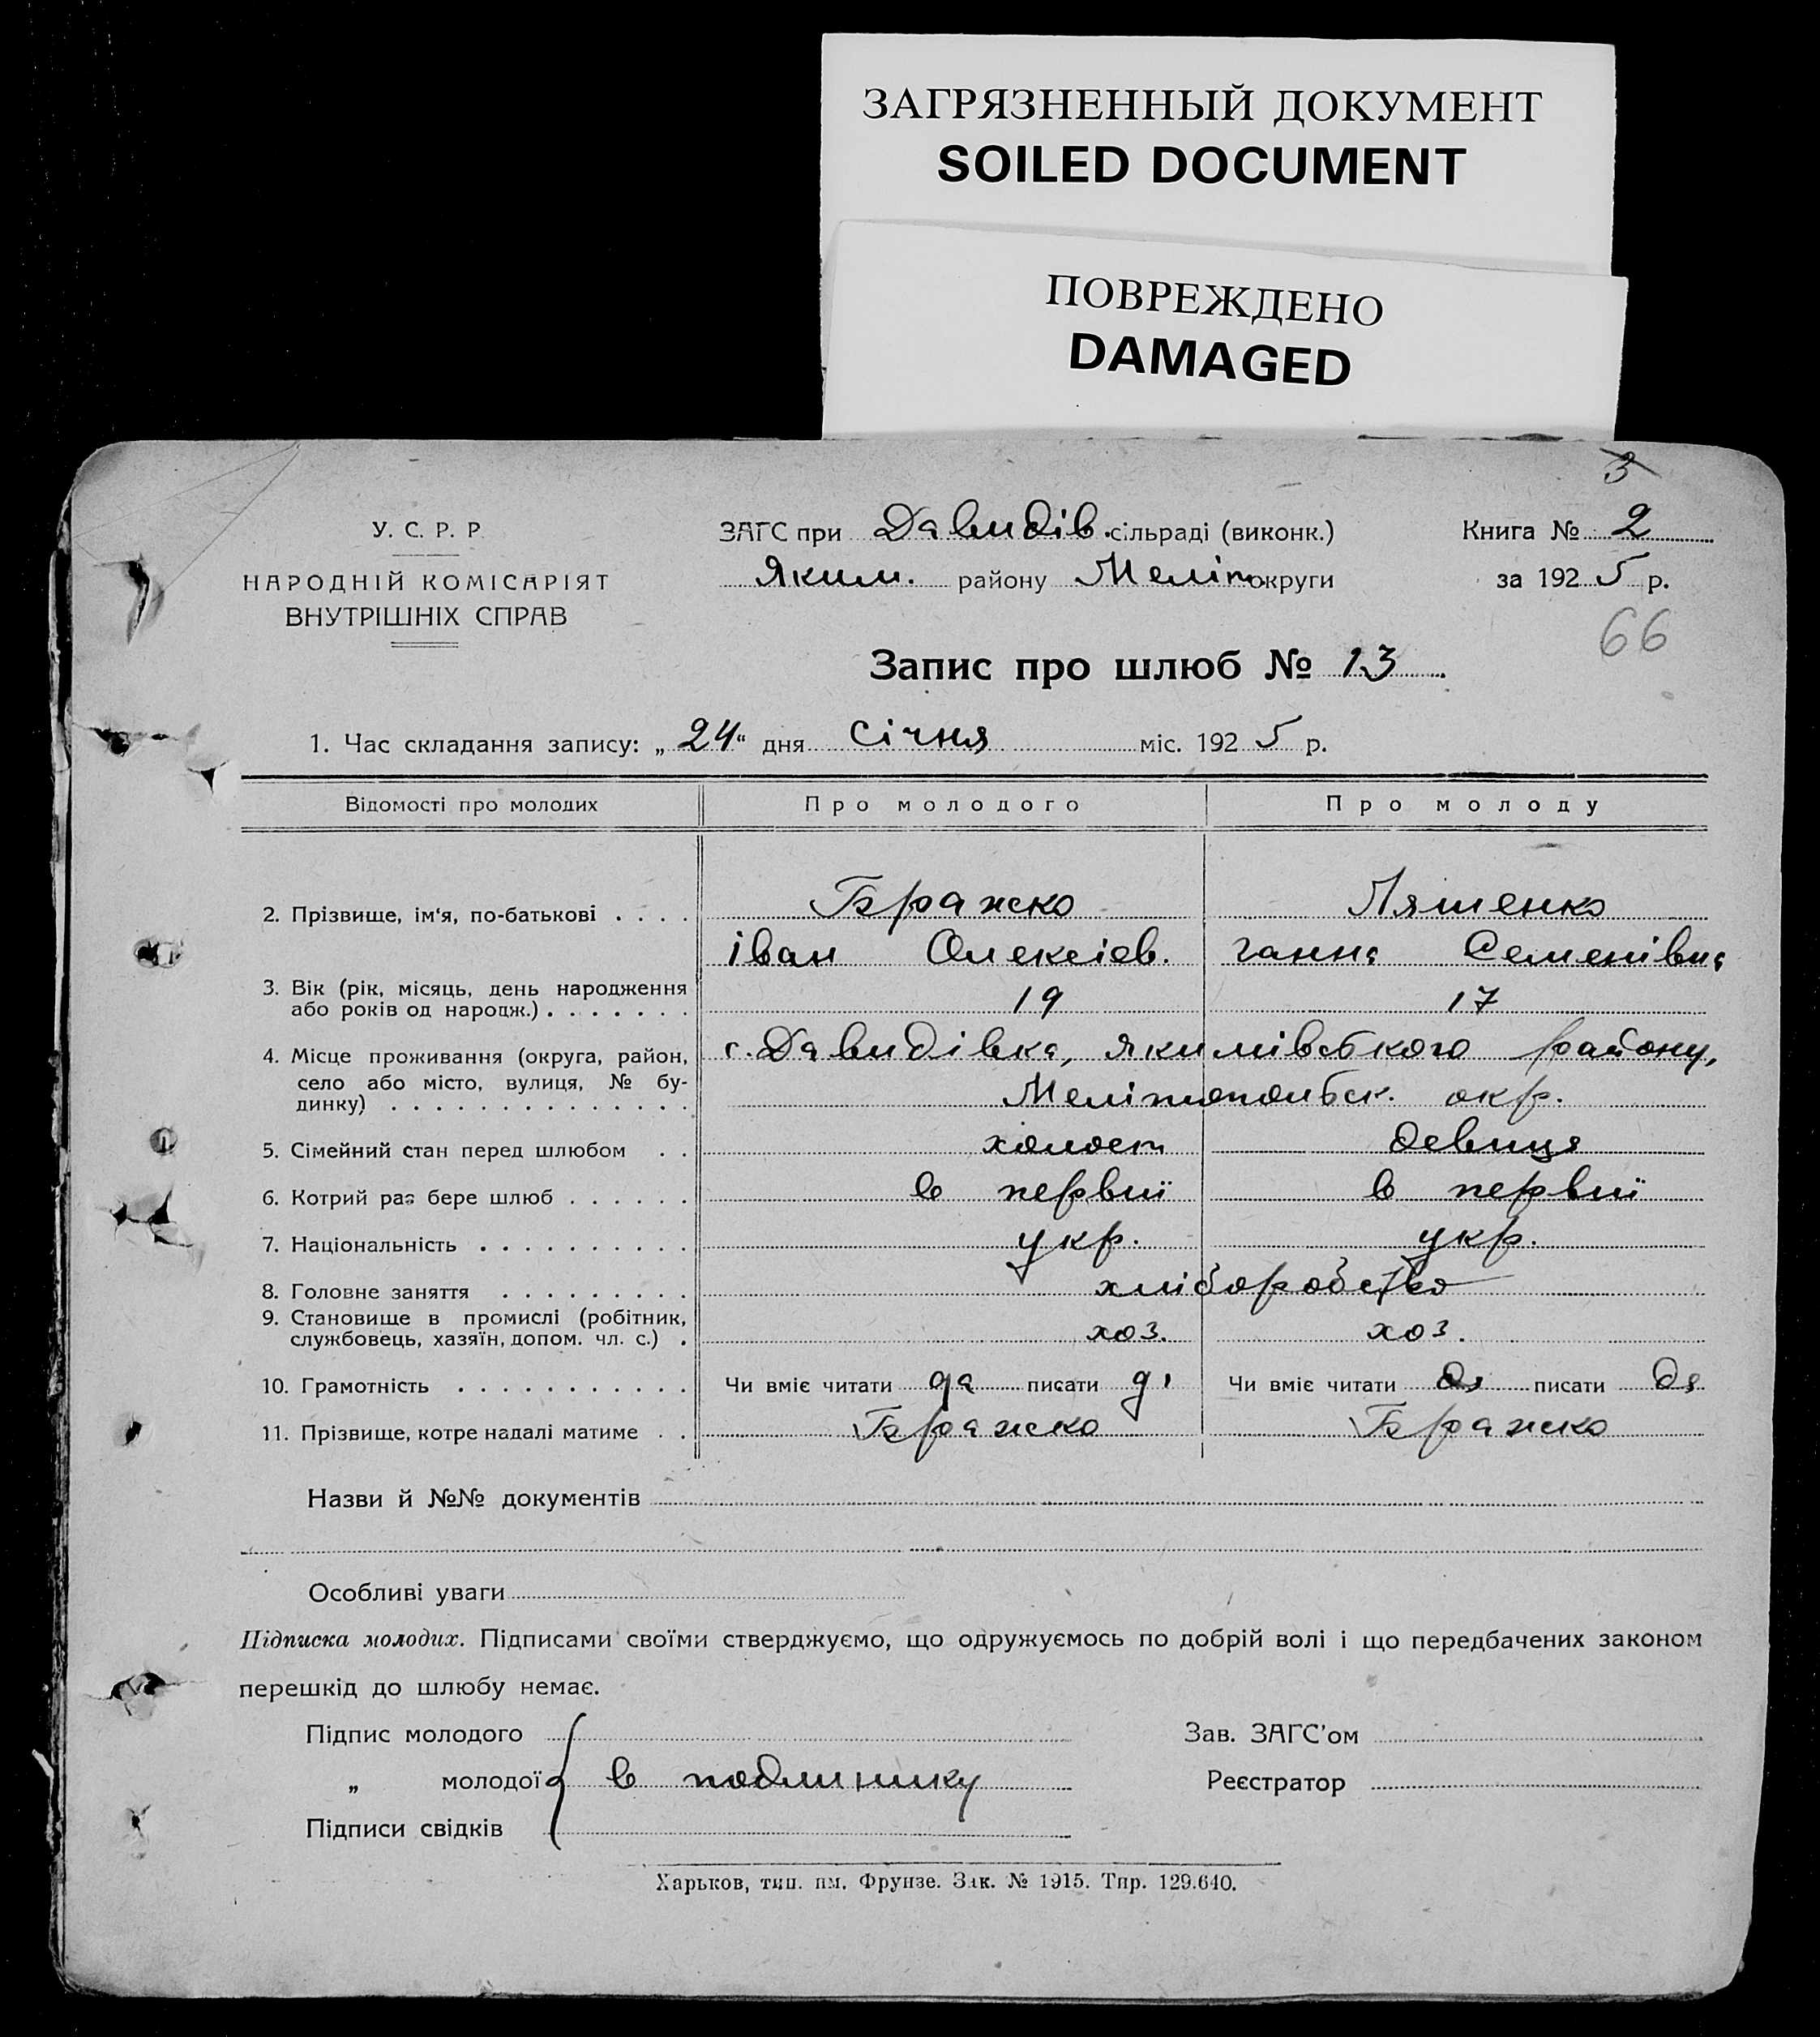 ЗАГРЯЗНЕННЫЙ ДОКУМЕНТ
SOILED DOCUMENT
ПОВРЕЖДЕНО
DAMAGED
3
У. С. Р. Р.
НАРОДНІЙ КОМІСАРІЯТ
ВНУТРІШНІХ СПРАВ
ЗАГС при Давидів. сільраді (виконк.)
Яким. району Меліт. округи
Книга № 2
за 1925 р.
66
Запис про шлюб № 13
1. Час складання запису: „24“ дня січня міс. 1925 р.
Відомості про молодих Про молодого Про молоду
2. Прізвище, ім‘я, по-батькові . . . . Бражко Ляшенко
іван Олексієв. ганна Семенівна
3. Вік (рік, місяць, день народження
або років од народж.) . . . . . . . 19 17
4. Місце проживання (округа, район, с. Давидівка, якимівського району,
село або місто, вулиця, № бу-
динку) . . . . . . . . . . . . . . Мелітопольськ. окр.
5. Сімейний стан перед шлюбом . . холост девиця
6. Котрий раз бере шлюб . . . . . . в первиї в первиї
7. Національність . . . . . . . . . . укр. укр.
8. Головне заняття . . . . . . . . . хліборобство
9. Становище в промислі (робітник,
службовець, хазяїн, допом. чл. с.) . хоз. хоз.
10. Грамотність . . . . . . . . . . . Чи вміє читати да писати да Чи вміє читати да писати да
11. Прізвище, котре надалі матиме . . Бражко Бражко
Назви й №№ документів
Особливі уваги
Підписка молодих. Підписами своїми стверджуємо, що одружуємось по добрій волі і що передбачених законом
перешкід до шлюбу немає.
Підпис молодого
„ молодої в подлинику
Підписи свідків
Зав. ЗАГС’ом
Реєстратор
Харьков, тип. им. Фрунзе. Зак. № 1915. Тир. 129.640.